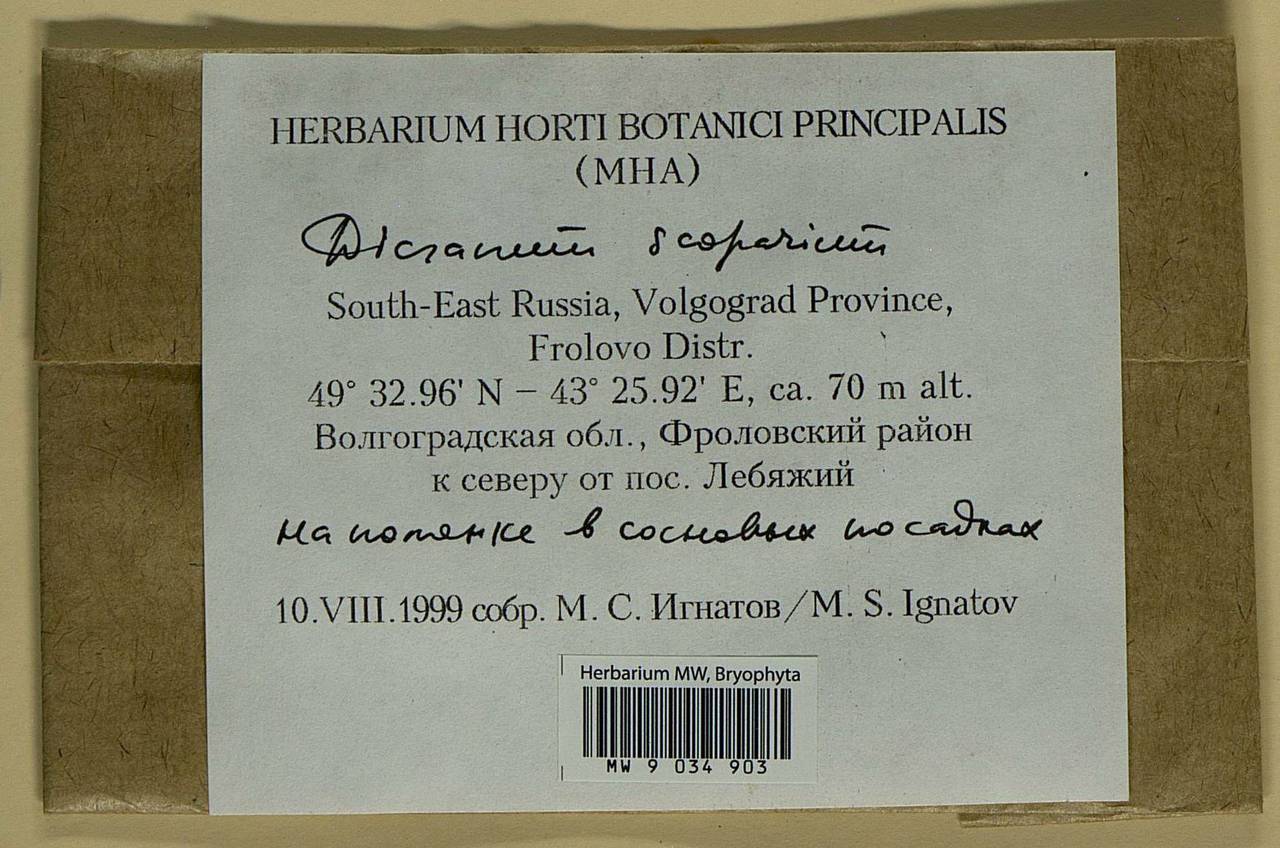 HERBARIUM HORTI BOTANICI PRINCIPALIS
(MHA)
Dicranum scoparium
South-East Russia, Volgograd Province,
Frolovo Distr.
49° 32.96' N – 43° 25.92' E, ca. 70 m alt.
Волгоградская обл., Фроловский район
к северу от пос. Лебяжий
на в сосновых посадках
10.VIII.1999 собр. М. С. Игнатов/M. S. Ignatov
Herbarium MW, Bryophyta
MW 9 034 903